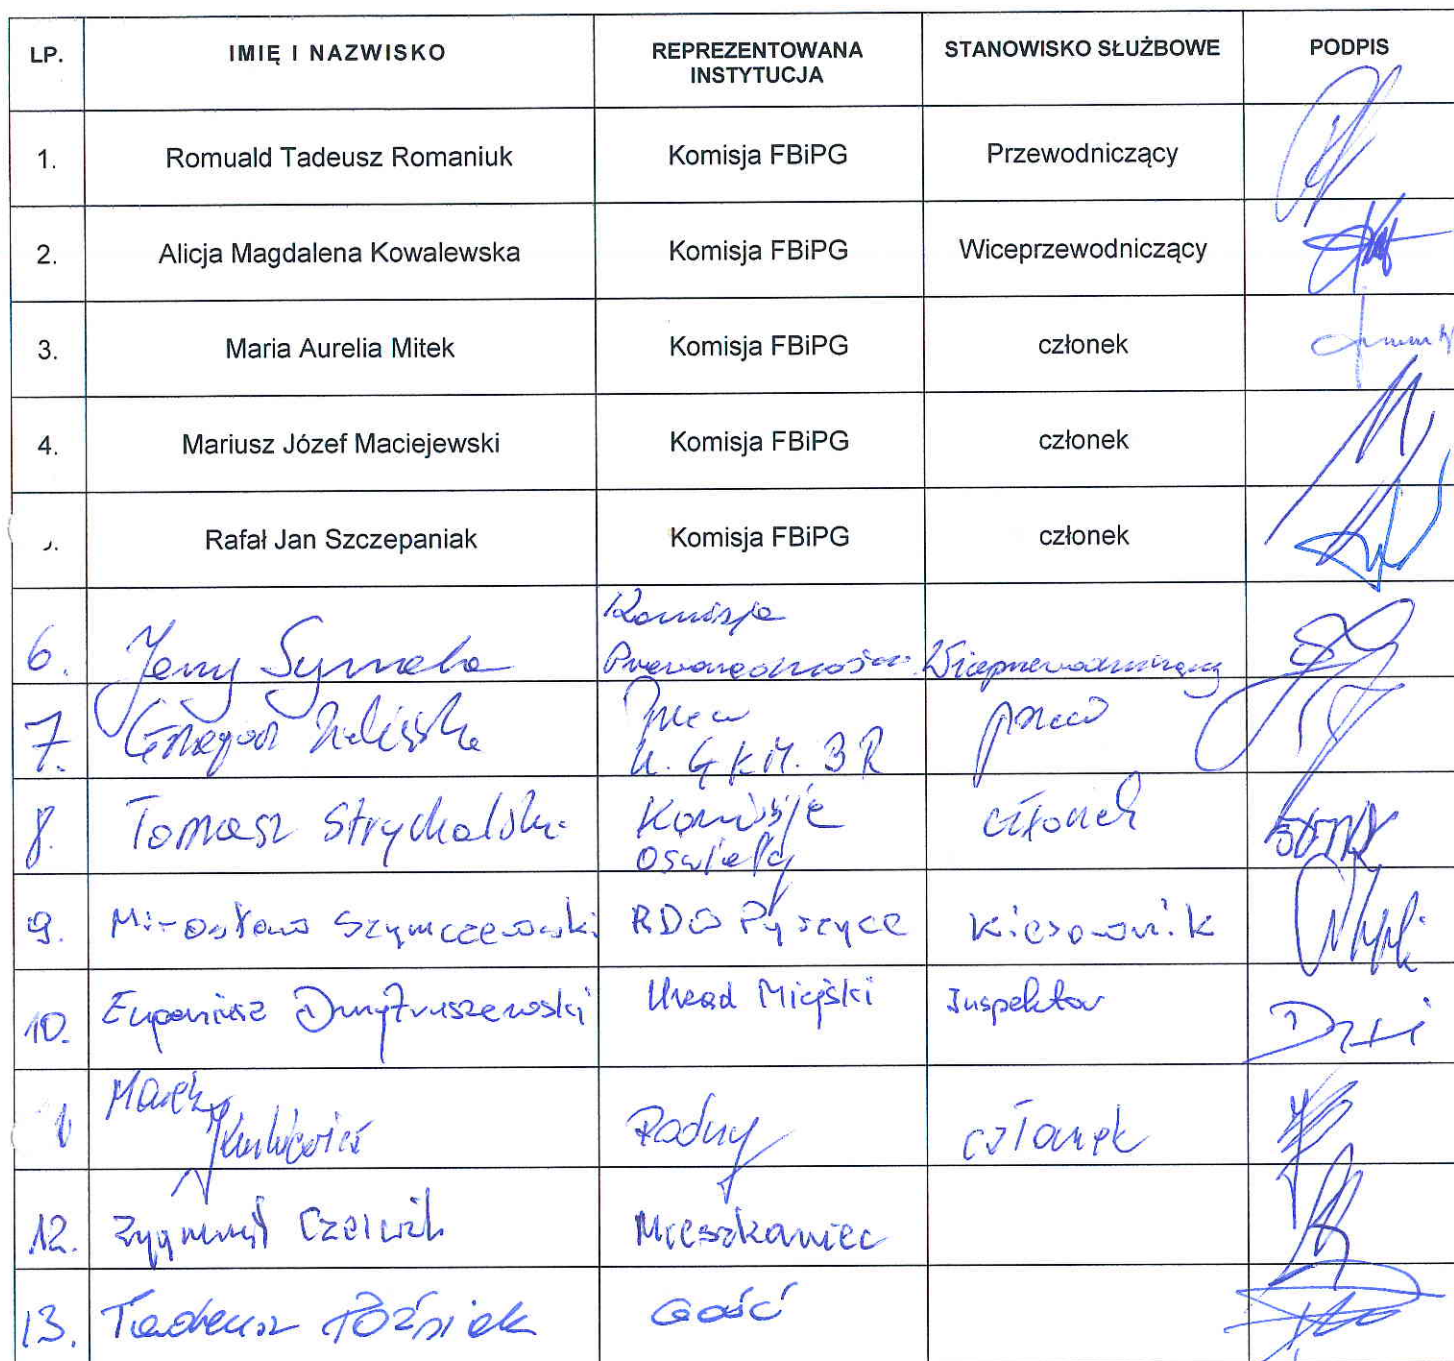 LP. IMIĘ I NAZWISKO REPREZENTOWANA INSTYTUCJA STANOWISKO SŁUŻBOWE PODPIS
1. Romuald Tadeusz Romaniuk Komisja FBiPG Przewodniczący
2. Alicja Magdalena Kowalewska Komisja FBiPG Wiceprzewodniczący
3. Maria Aurelia Mitek Komisja FBiPG członek
4. Mariusz Józef Maciejewski Komisja FBiPG członek
Rafał Jan Szczepaniak Komisja FBiPG członek
6. Jerzy Komisja Wiceprzewodniczący
7. Grzegorz
8. Tomasz Strychalski Komisja Oświaty członek
9. Mirosław Szymczewski RDO Pyrzyce Kierownik
10. Eugeniusz Dmytruszewski Urząd Miejski Inspektor
Marek Radny członek
12. Zygmunt Czerwik Mieszkaniec
13. Tadeusz Późniak Gość